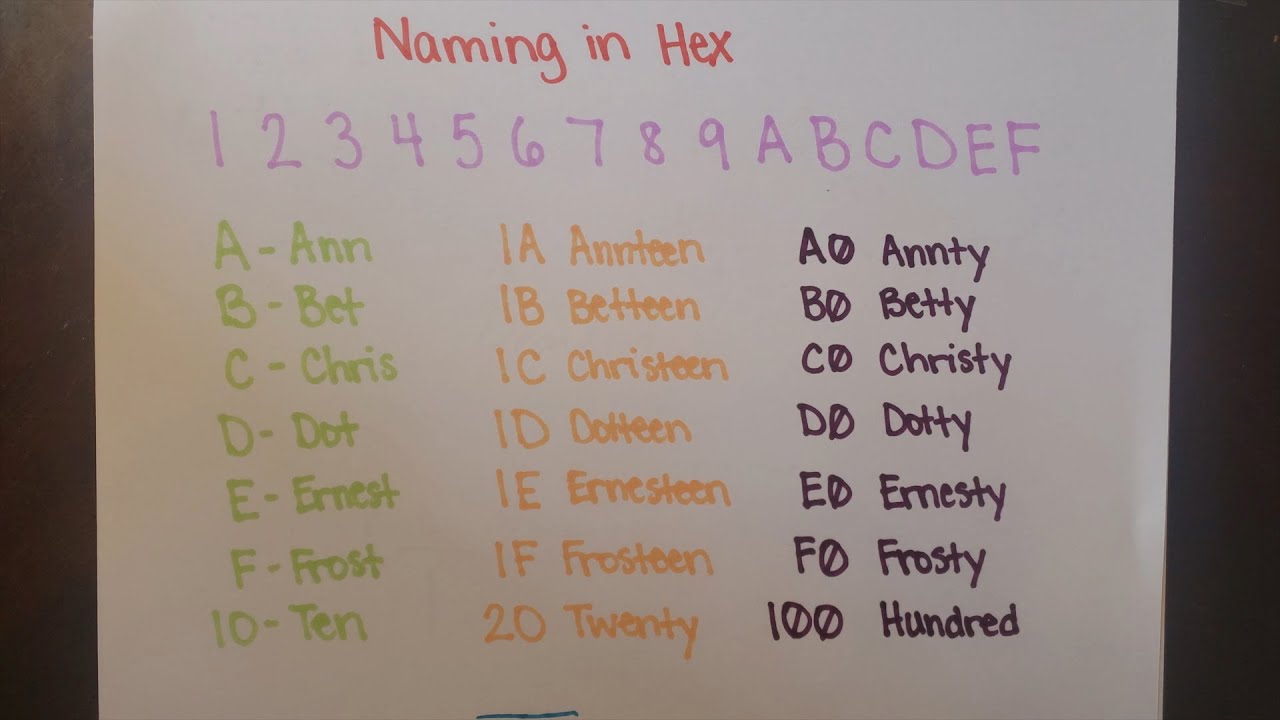 Naming in Hex
1 2 3 4 5 6 7 8 9 A B C D E F
A - Ann 1A Annteen A0 Annty
B - Bet 1B Betteen B0 Betty
C - Chris 1C Christeen C0 Christy
D - Dot 1D Dotteen D0 Dotty
E - Ernest 1E Ernesteen E0 Ernesty
F - Frost 1F Frosteen F0 Frosty
10 - Ten 20 Twenty 100 Hundred